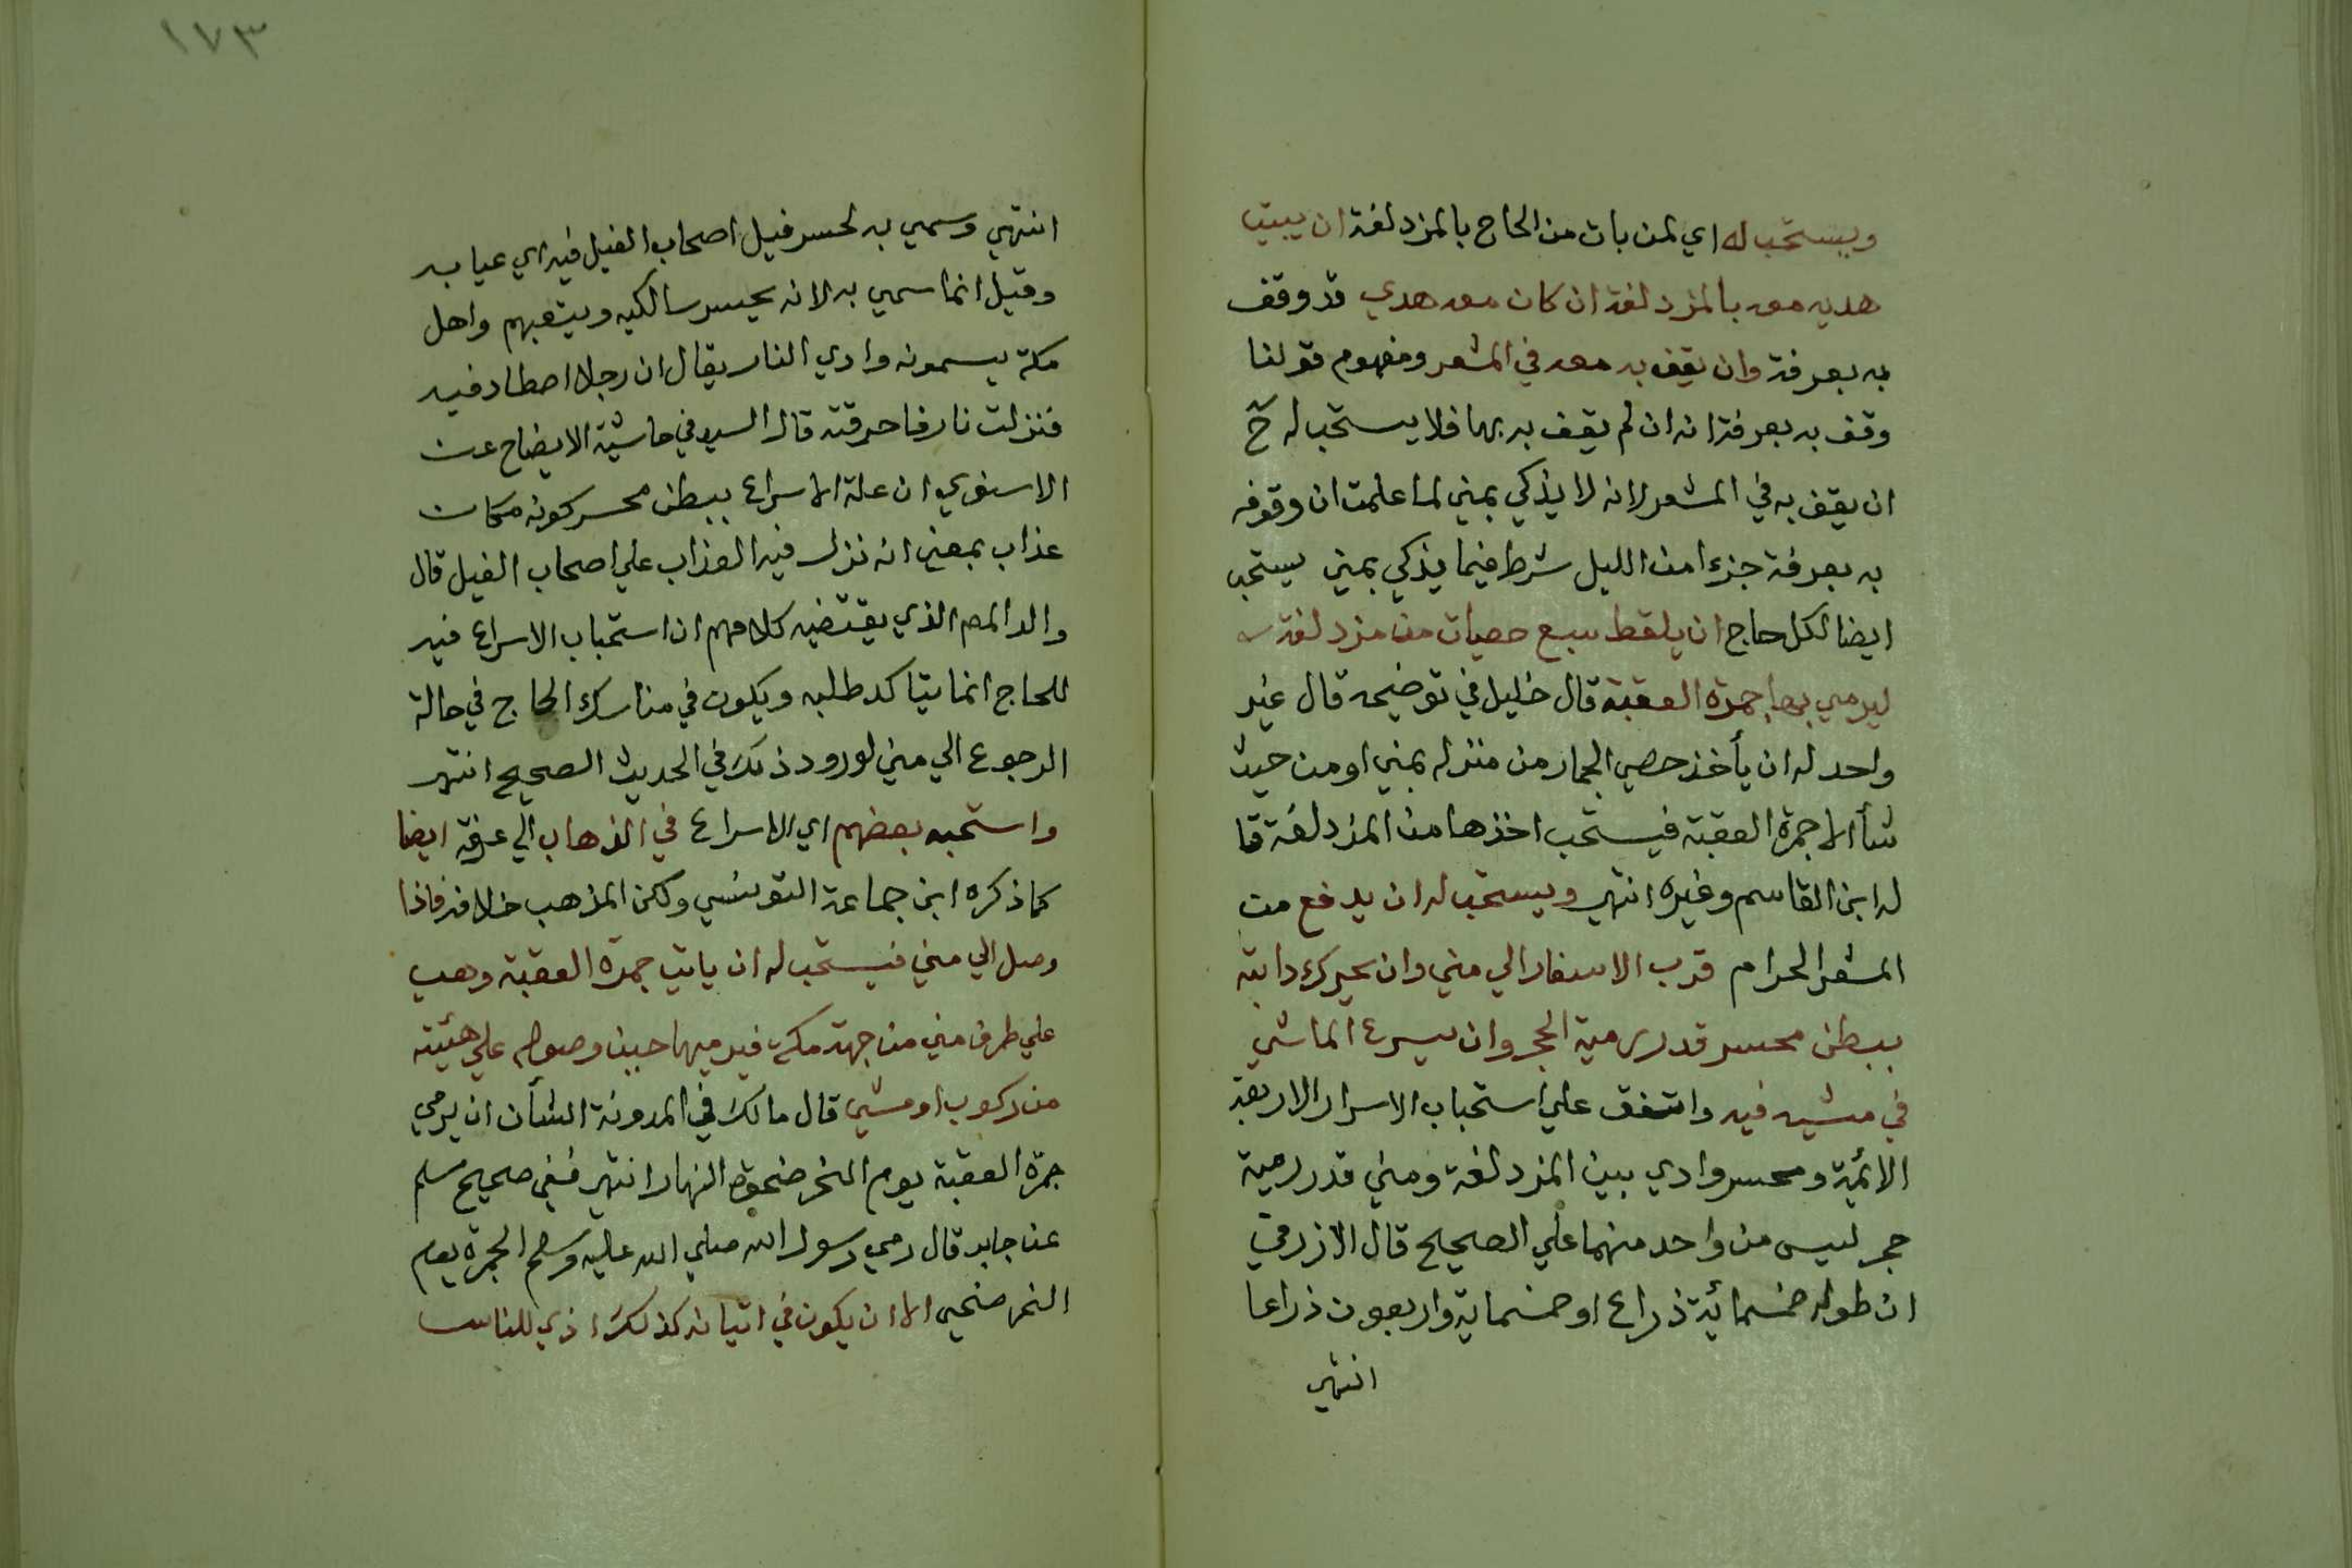 ويستحب له اي لمن بات من الحاج بالمزدلفة ان يبيت
هديه معه بالمزدلفة ان كان معه هدي قد وقف
به بعرفة وان يقف به معه في المشعر ومفهوم قولنا
وقف به بعرفة انه ان لم يقف به بها فلا يستحب له ح
ان يقف به في المشعر لانه لا يذكي بمني لما علمت ان وقوفه
به بعرفة جزءا من الليل شرط فيما يذكي بمني يستحب
ايضا لكل حاج ان يلقط سبع حصيات من مزدلفة
ليرمي بها جمرة العقبة قال خليل في توضيحه قال غير
واحد له ان يأخذ حصي الجمار من منزله بمني او من حيث
شأ الا جمرة العقبة فيستحب اخذها من المزدلفة قا
له ابن القاسم وغيره انتهي ويستحب له ان يدفع من
المشعر الحرام قرب الاسفار الي مني وان يحرك دابته
ببطن محسر قدر رمية الحجر وان يسرع الماشي
في مشيه فيه واتفق علي استحباب الاسرار الاربعة
الائمية ومحسر وادي بين المزدلفة ومني قدر رمية
حجر ليس من واحد منهما علي الصحيح قال الازرقي
ان طوله خمسمائة ذراع او خمسماية واربعون ذراعا
انتهي
١٧٣
انتهي وسمي به لحسر فيل اصحاب الفيل فيه اي عيا به
وقيل انما سمي به لانه يحسر سالكيه ويتعبهم واهل
مكة يسمونه وادي النار يقال ان رجلا اصطاد فيه
فنزلت نار فاحرقته قال السيد في حاشية الايضاح عن
الاسنوي ان علة الاسراع ببطن محسر كونه مكان
عذاب بمعني انه نزل فيه العذاب علي اصحاب الفيل قال
والد المص الذي يقتضيه كلامهم ان استحباب الاسراع فيه
للحاج انما يتاكد طلبه ويكون في مناسك الحاج في حالة
الرجوع الي مني لورود ذلك في الحديث الصحيح انتهي
واستحبه بعضهم اي الاسراع في الذهاب الي عرفة ايضا
كما ذكره ابن جماعة التونسي ولكن المذهب خلافه فاذا
وصل الي مني فيستحب له ان ياتي جمرة العقبة وهي
علي طرف مني من جهة مكة فيرميها حين وصوله علي هيئته
من ركوب او مشي قال مالك في المدونة الشأن ان يرمي
جمرة العقبة يوم النحر ضحوة النهار انتهي ففي صحيح مسلم
عن جابر قال رمي رسول الله صلي الله عليه وسلم الجمرة يوم
النحر ضحي الا ان يكون في اتيانه كذلك اذي للناس